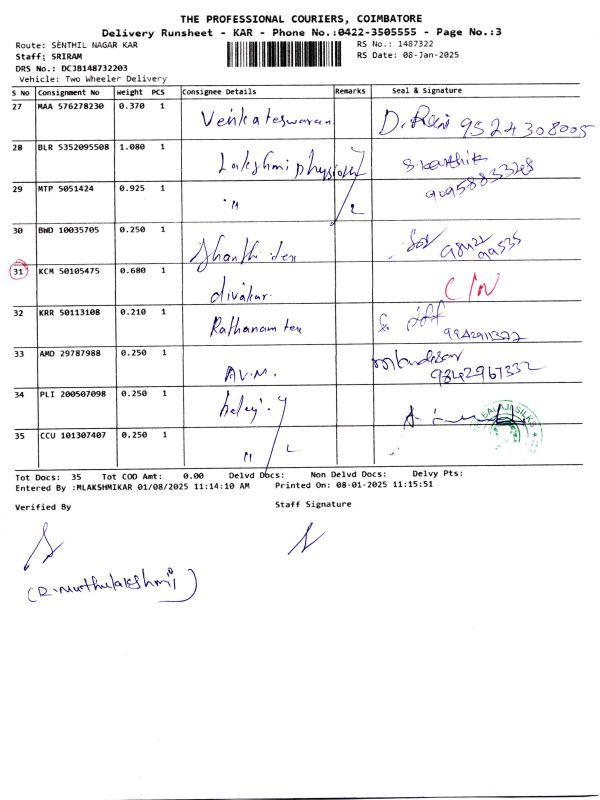 THE PROFESSIONAL COURIERS, COIMBATORE
Delivery Runsheet - KAR - Phone No.:0422-3505555 - Page No.:3
Route: SENTHIL NAGAR KAR
RS No.: 1487322
Staff: SRIRAM
RS Date: 08-Jan-2025
DRS No.: DCJB148732203
Vehicle: Two Wheeler Delivery
S No Consignment No Weight PCS Consignee Details Remarks Seal & Signature
27 MAA 576278230 0.370 1 Venkateswaran D. Rani 9524308005
28 BLR 5352095508 1.080 1 Lakshmi physio S. Karthik
9095883348
29 MTP 5051424 0.925 1 " 2
30 BWD 10035705 0.250 1 Shanthi
31 KCM 50105475 0.680 1 divakar. C/N
32 KRR 50113108 0.210 1 Rathanam tex
33 AMD 29787988 0.250 1 AV.M. 9842967332
34 PLI 200507098 0.250 1 balaji. BALAJI SILKS
35 CCU 101307407 0.250 1 "
Tot Docs: 35 Tot COD Amt: 0.00 Delvd Docs: Non Delvd Docs: Delvy Pts:
Entered By :MLAKSHMIKAR 01/08/2025 11:14:10 AM Printed On: 08-01-2025 11:15:51
Verified By Staff Signature
(R. Muthulakshmi)